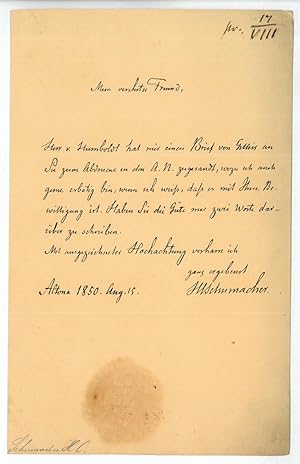 pr. 17/VIII
Mein verehrter Freund,
Herr v. Humboldt hat mir einen Brief von Gillis an
Sie zum Abdrucke in den A. N. zugesandt, wozu ich auch
gerne erbötig bin, wenn ich weiß, daß er mit Ihrer Be-
willigung ist. Haben Sie die Güte mir zwei Worte dar-
über zu schreiben.
Mit ausgezeichneter Hochachtung verharre ich
ganz ergebenst
Altona 1850. Aug. 15. HCSchumacher.
Schumacher H. C.